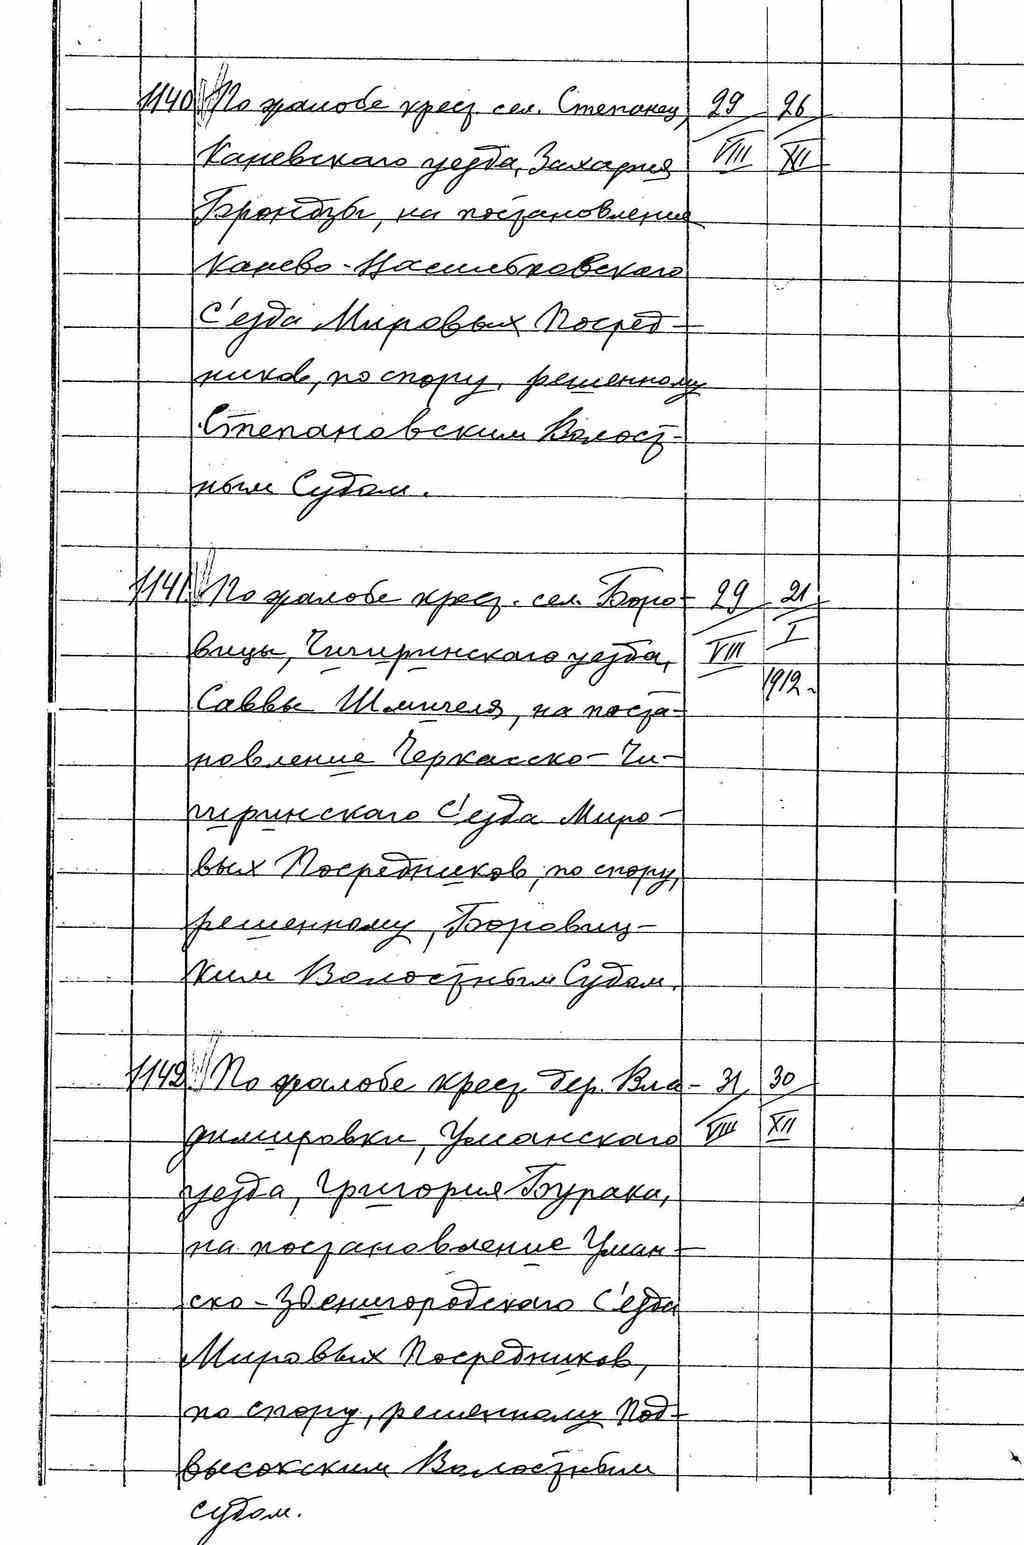 1140 По жалобе крест. сел. Степанец, 29 26
Каневского уезда, Захария VIII XII
Брондзы, на постановление
Канево-Васильковского
С'езда Мировых Посред-
ников, по спору, решенному
Степановским Волост-
ным Судом.
1141 По жалобе крест. сел. Боро- 29 21
вицы, Чигиринского уезда, VIII I
Саввы Шмигеля, на поста- 1912
новление Черкасско-Чи-
гиринского С'езда Миро-
вых Посредников, по спору,
решенному, Боровиц-
ким Волостным Судом.
1142 По жалобе крест. дер. Вла- 31 30
димировки, Уманского VIII XII
уезда, Григория Бурака,
на постановление Уман-
ско-Звенигородского С'езда
Мировых Посредников,
по спору, решенному Под-
высокским Волостным
судом.